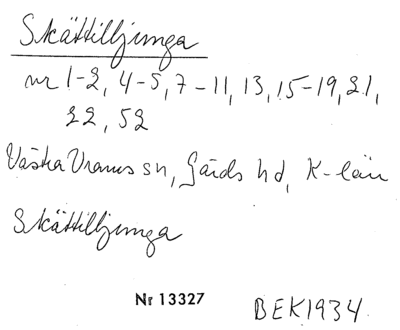 Skättilljunga
nr 1-2, 4-5, 7-11, 13, 15-19, 21,
22, 52
Västra Vrams sn, Gärds hd, K-län
Skättilljunga
Nr 13327 BEK1934